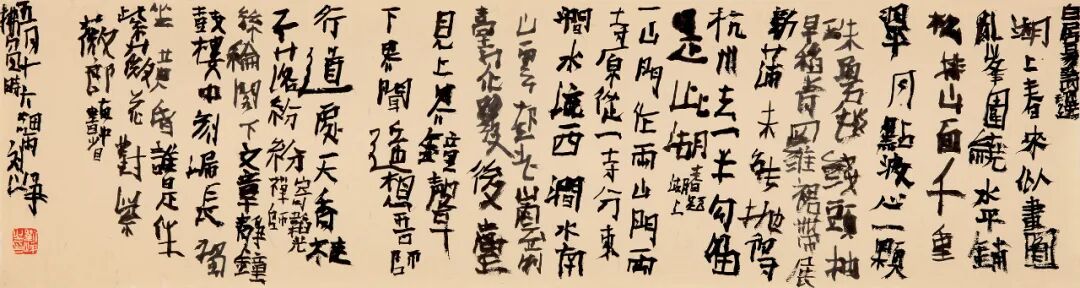 白居易詩選
湖上春來似畫圖
亂峯圍繞水平鋪
松排山面千重
翠月點波心一顆
珠碧毯線頭抽
早稻青羅裙帶展
新蒲未能抛得
杭州去一半勾留
是此湖
春題湖上
一山門作兩山門兩
寺原從一寺分東
澗水流西澗水南
山雲起北山雲前
臺花發後臺
見上界鐘聲
下界聞遙想吾師
行道處天香桂
子落紛紛
寄韜光禪師
絲綸閣下文章靜鐘
鼓樓中刻漏長獨
坐黃昏誰是伴
紫薇花對紫
薇郎
直中書省
五月十六